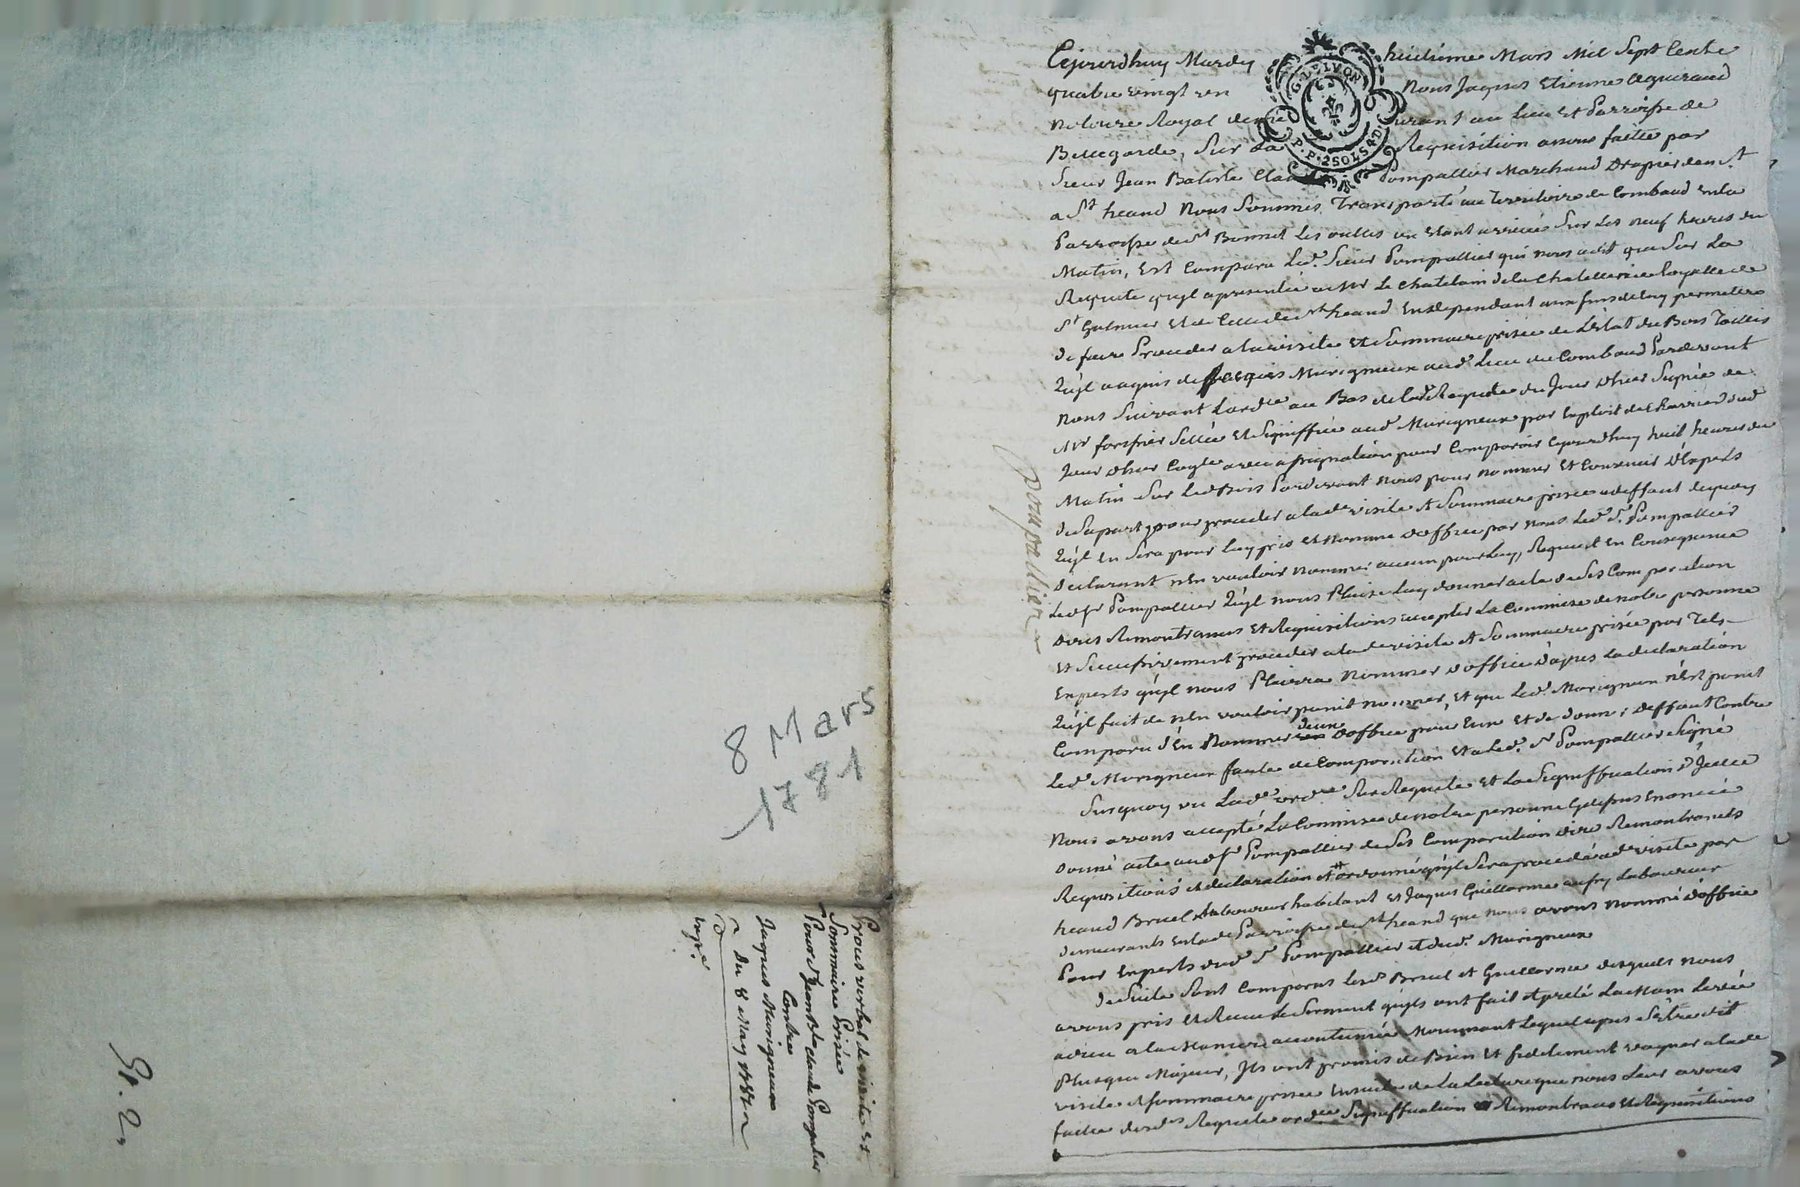 Cejourdhuy Mardy huitième Mars Mil Sept Cents
quatre vingt un Nous Jaques Etienne
notaire Royal demeurant au Lieu et Parroisse de
Bellegarde, Sur La Requisition a nous faitte par
Sieur Jean Batiste Claude Pompallier Marchand Drapier demt
a St heand Nous Sommes Transporté au Territoire de Combaud en la
Parroisse de St Bonnet Les oulles ou étant arrivés Sur Les neuf heures du
Matin, Est Comparu Led. Sieur Pompallier qui nous a dit que Sur La
Requete qu'yl a presentée a Mr Le Chatelain de la Chatellenie Royalle de
St Galmier et de Celle de St heand En dependant aux fins de luy permettre
de faire Proceder a la visite et Sommaire prisée de L'état du Bois Taillis
qu'yl a aquis de Jacques Murigneux aud. Lieu de Combaud Pardevant
nous Suivant Lordce au Bas de lad. Requete du Jour d'hier Signée de
Mr Sellée et Signiffiée aud. Murigneux par Exploit de dud.
Jour d'hier avec assignation pour Comparoir cejourdhuy huit heures du
Matin Sur Led. Bois Pardevant nous pour nommer et Convenir d'Experts
de Sa part pour proceder a lade visite et Sommaire prisée a deffaut de quoy
qu'yl En Sera pour Luy pris et nommé d'office par nous Led. Sr. Pompallier
declarant n'En vouloir nommer aucun pour Luy, Requert En Consequence
Led. Sr Pompallier qu'yl nous Plaise Luy donner acte de Ses Comparution
dires Remontrances et Requisitions accepter La Commise de notre personne
et Successivement proceder a lade visite et Sommaire prisée par Tels
Experts qu'yl nous Plaira nommer d'office d'apres La declaration
qu'yl fait de n'En vouloir point nommer, et que Led. Murigneux n'Est point
Comparu d'En Nommer deux d'office pour Eux et de donner deffaut Contre
Led. Murigneux faute de Comparution et a Led. Sr Pompallier Signé
Surquoy vu Lade ordce Sur Requete et La Signiffication d'Jcelle
Nous avons accepté La Commise de notre personne Cydessus Enoncée
donné acte aud. Sr Pompallier de Ses Comparution dire Remontrances
Requisitions et declaration et ordonné qu'yl Sera procedé a lade visite par
heand Bruel Laboureur habitant et Jaques Guillarme Laboureur
demeurants En lade Parroisse de St heand que nous avons nommé d'office
Pour Experts dud. Sr Pompallier et dud. Murigneux
de Suite Sont Comparus Lesd. Bruel et Guillarme desquels nous
avons pris et Receu Le Serment qu'yls ont fait et preté La Main Levée
a dieu a la Maniere accoutumée Moyennant Lequel apres s'être dit
Plus que Majeur, Jls ont promis de Bien et fidelement vaquer a lade
visite et Sommaire prisée Ensuite de La Lecture que nous Leur avons
faitte desd. Requete ordce Signiffication Remontrances et Requisitions
G. DE LYON
P.P. 2 SOLS 4 D
pompallier
8 Mars
1781
Procès verbal de visite et
Sommaire Prisée
Pour Sr Jean Bte Claude Pompallier
Contre
Jaques Murigneux
Du 8 Mars 1781